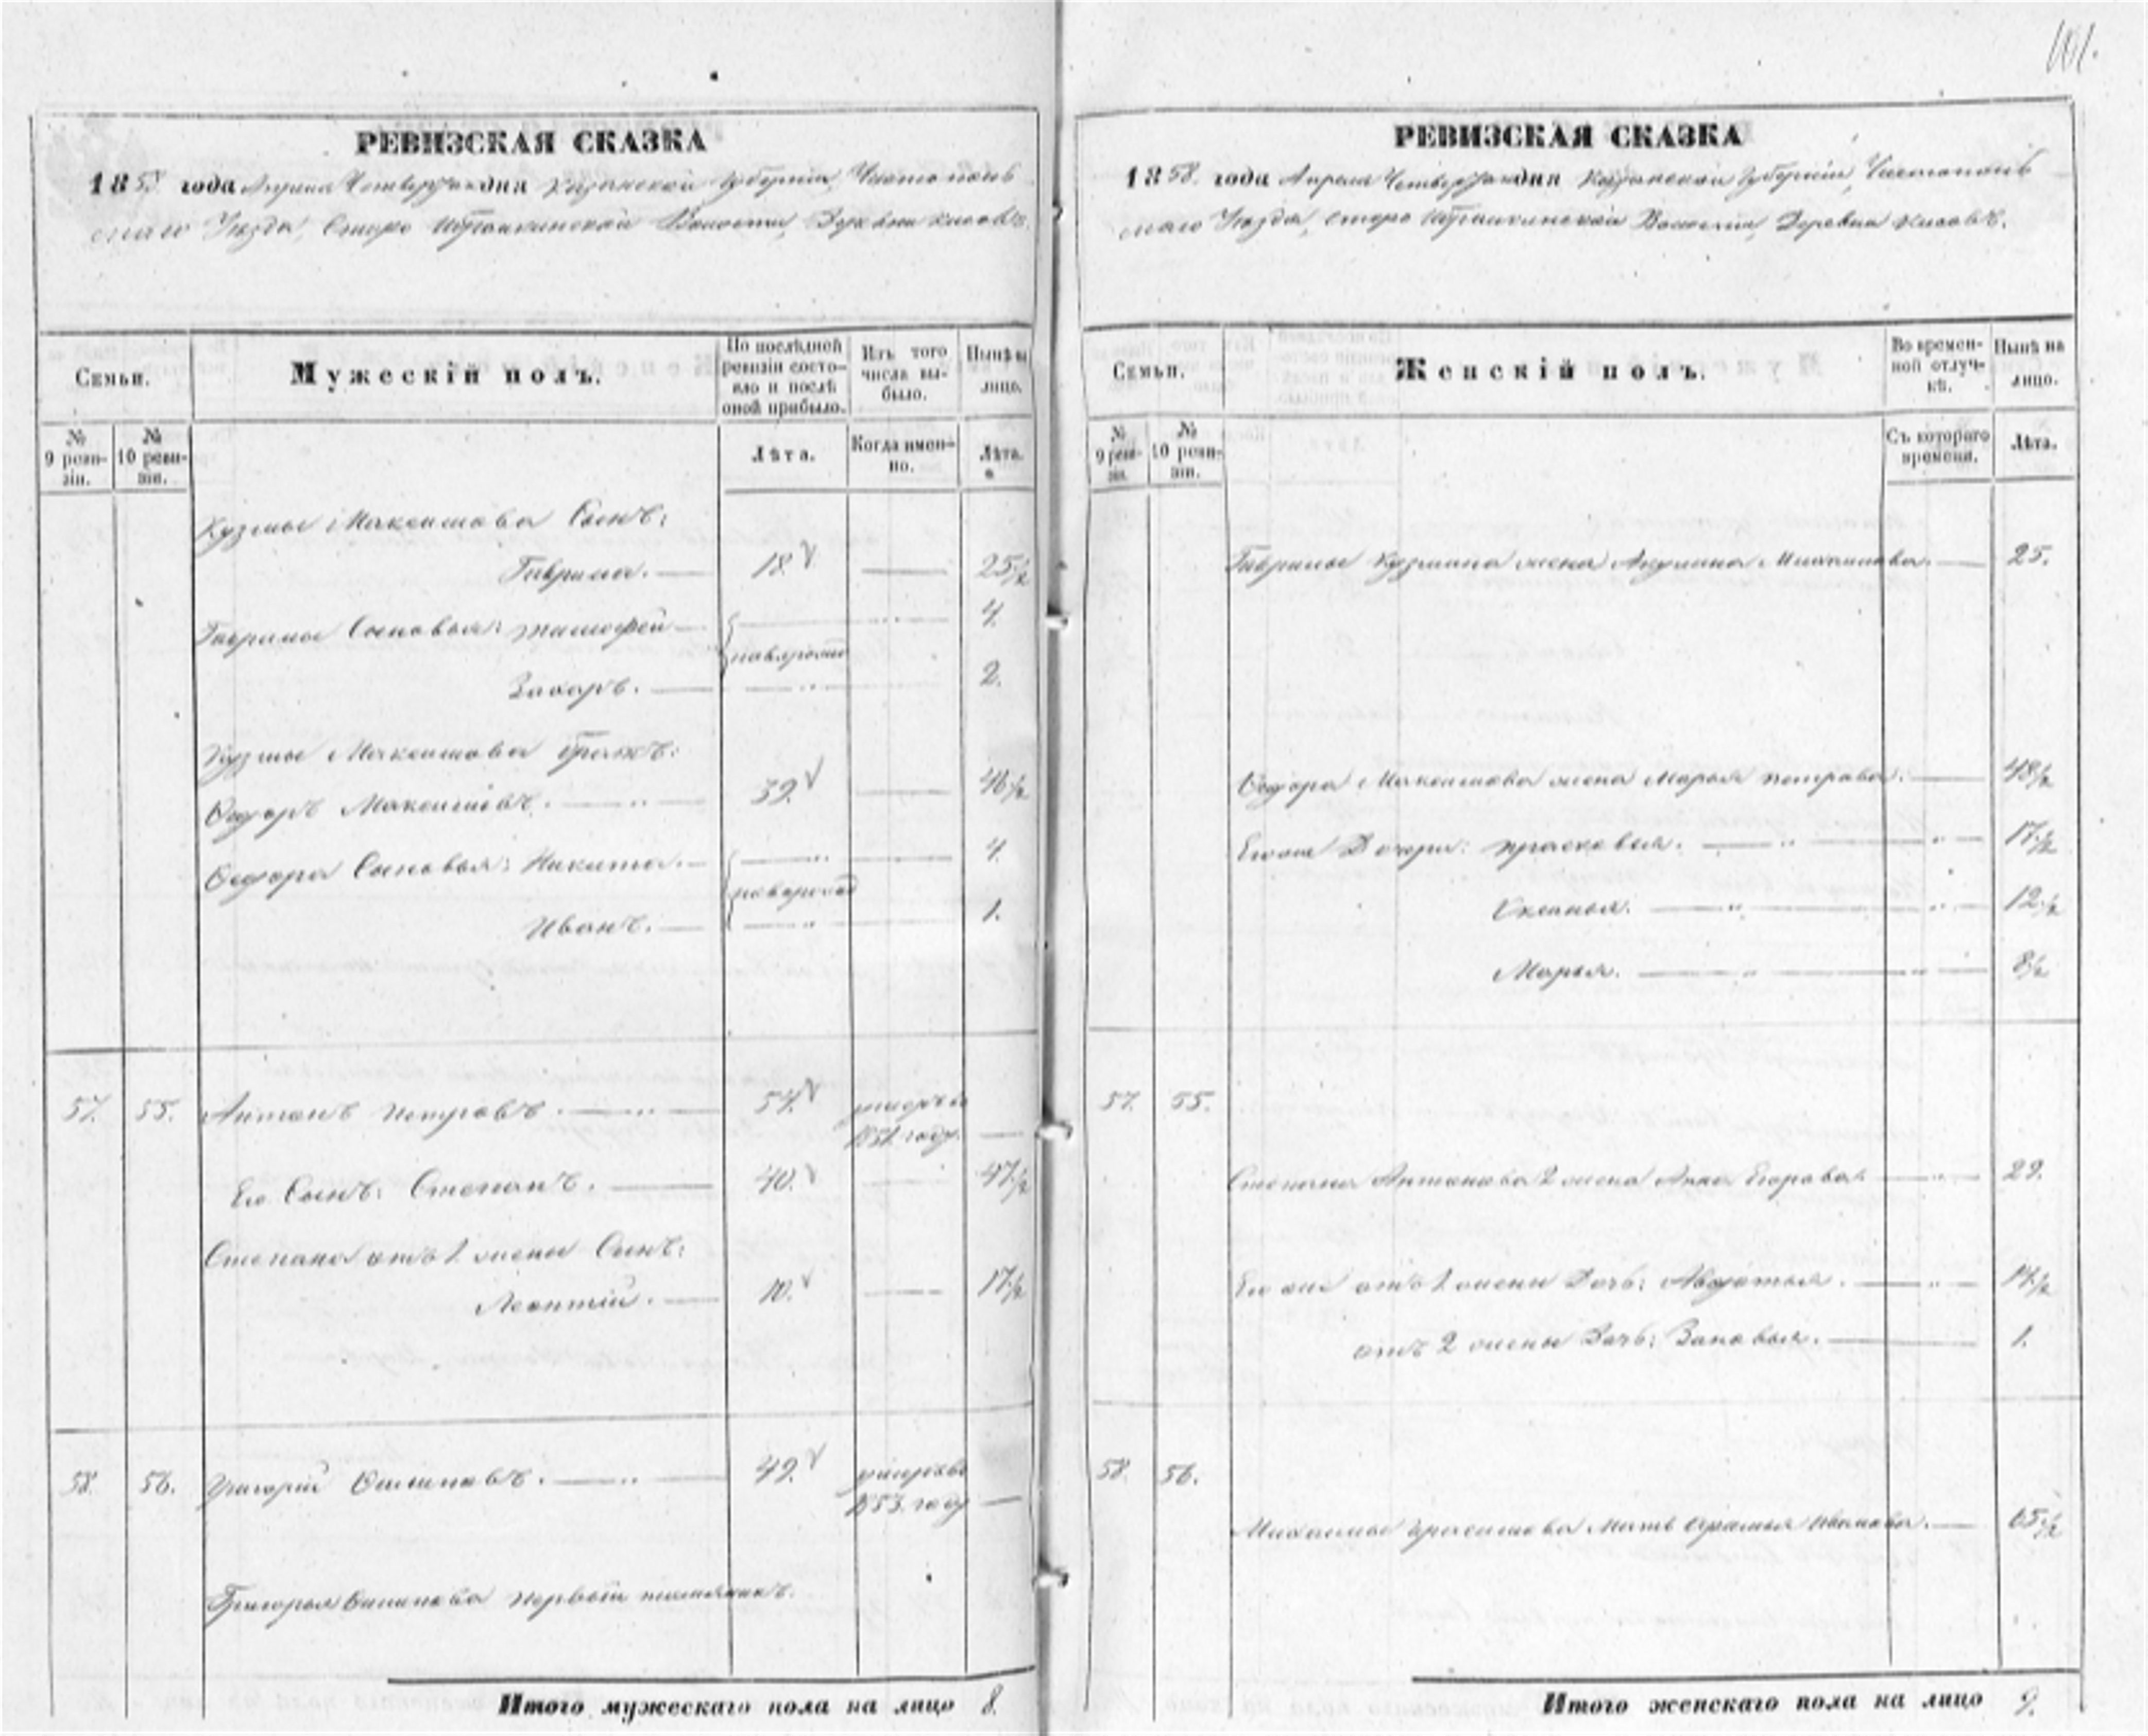 101.
РЕВИЗСКАЯ СКАЗКА
1858 года Апреля Четвертаго дня Казанской Губернiи, Чистополь
скаго Уѣзда, Старо Волости, Деревни
Семьи.
Мужескiй полъ.
По послѣдней
ревизiи состо-
яло и послѣ
оной прибыло.
Изъ того
числа вы-
было.
Нынѣ на
лицо.
№
9 реви-
зiи.
№
10 реви-
зiи.
Лѣта.
Когда имен-
но.
Лѣта.
Кузмы Максимова Сынъ:
Гаврила. 18. 25½
Гаврилы Сыновья: Тимофей 4.
новорожд
Захаръ. 2.
Кузмы Максимова Братъ:
Ѳедоръ Максимовъ. 39. 46½
Ѳедора Сыновья: Никита. 4.
новорожд
Иванъ. 1.
57. 55. Антонъ Петровъ. 54. умеръ въ
1851. году.
Его Сынъ: Степанъ. 40. 47½
Степана отъ 1 жены Сынъ:
Леонтiй. 10. 17½
58. 56. Григорiй 49. умеръ въ
1853. году
Григорья первый племянникъ.
Итого мужескаго пола на лицо 8.
РЕВИЗСКАЯ СКАЗКА
1858. года Апреля Четвертаго дня Казанской Губернiи, Чистополь
скаго Уѣзда, Старо Волости, Деревни
Семьи.
Женскiй полъ.
Во времен-
ной отлуч-
кѣ.
Нынѣ на
лицо.
№
9 реви-
зiи.
№
10 реви-
зiи.
Съ котораго
времени.
Лѣта.
Гаврилы Кузмина жена Акулина 25.
Ѳедора Максимова жена Марья Петрова. 48½
Его же Дочери: Прасковья. 17½
Ксенья. 12½
Марья. 8½
57. 55.
Степана Антонова 2 жена Анна Егорова. 29.
Его же отъ 1 жены Дочь: Авдотья. 14½
отъ 2 жены Дочь: Зиновья. 1.
58. 56.
Мать Иванова. 65½
Итого женскаго пола на лицо 9.